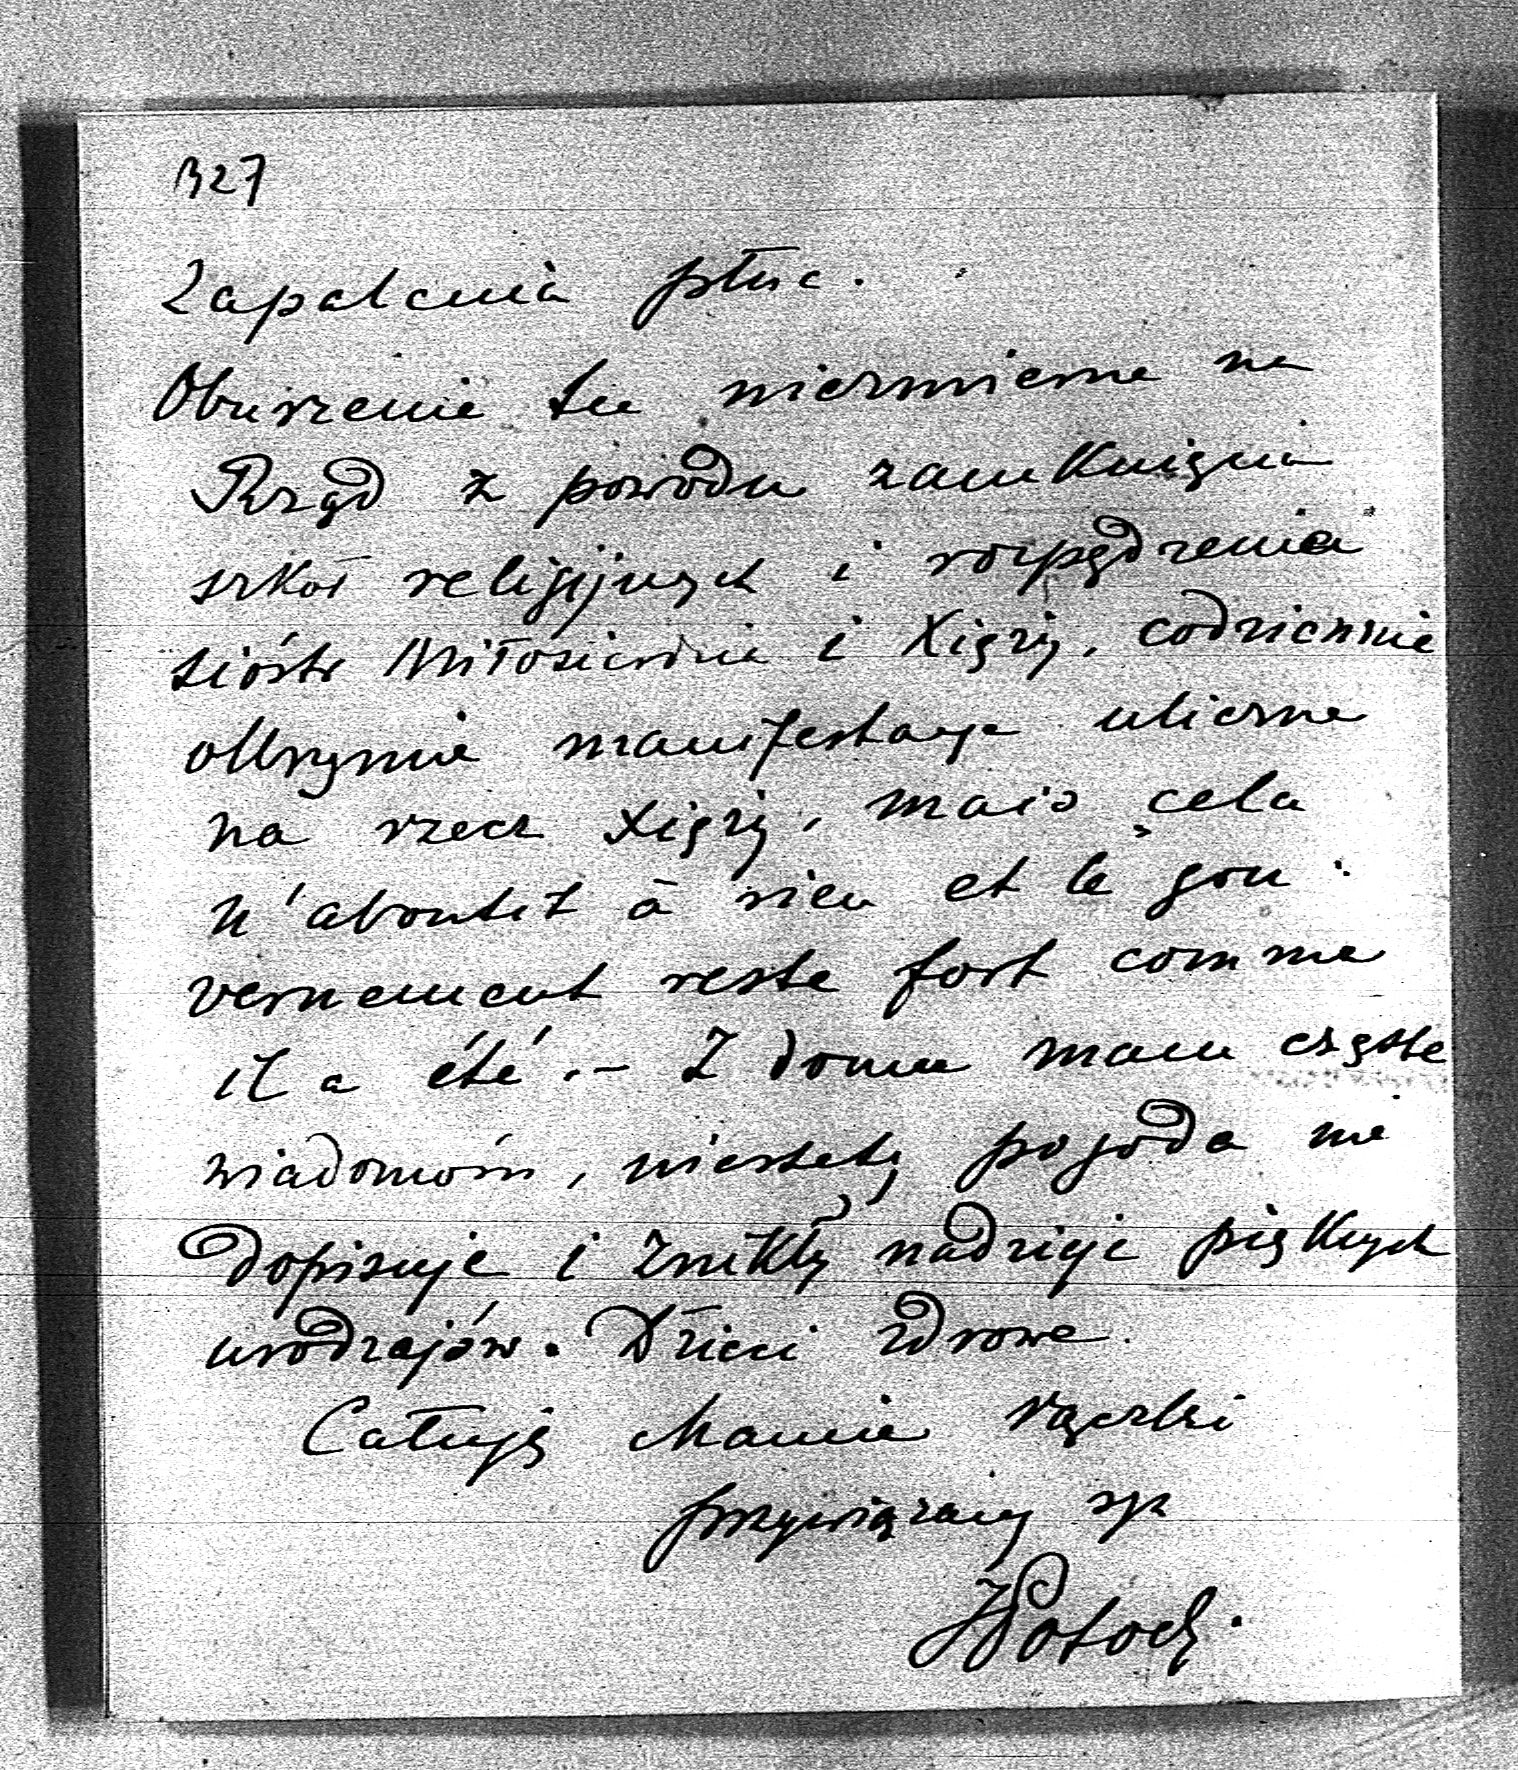 327
Zapalenia płuc.
Oburzenie tu niezmierne na
Rząd z powodu zamknięcia
szkół religijnych i rozpędzenia
sióstr Miłosierdzia i Xięży, codziennie
olbrzymie manifestacye uliczne
na rzecz Xięży, mais cela
n'aboutit à rien et le gou-
vernement reste fort comme
il a été.- Z domu mam częste
wiadomości, niestety pogoda nie
dopisuje i znikły nadzieje pięknych
urodzajów. Dzieci zdrowe.
Całuję Mamie rączki
przywiązany syn
Potocki